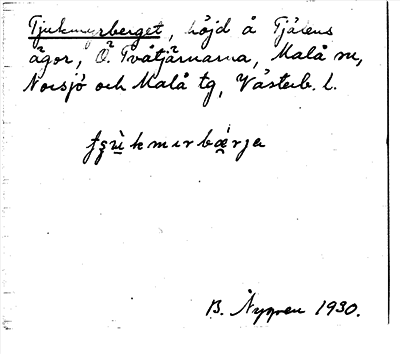 Tjukmyrberget, höjd å Tjålens
ägor, Ö. Tvåtjärnarna, Malå sn,
Norsjö och Malå tg, Västerb. l.
B. Nygren 1930.